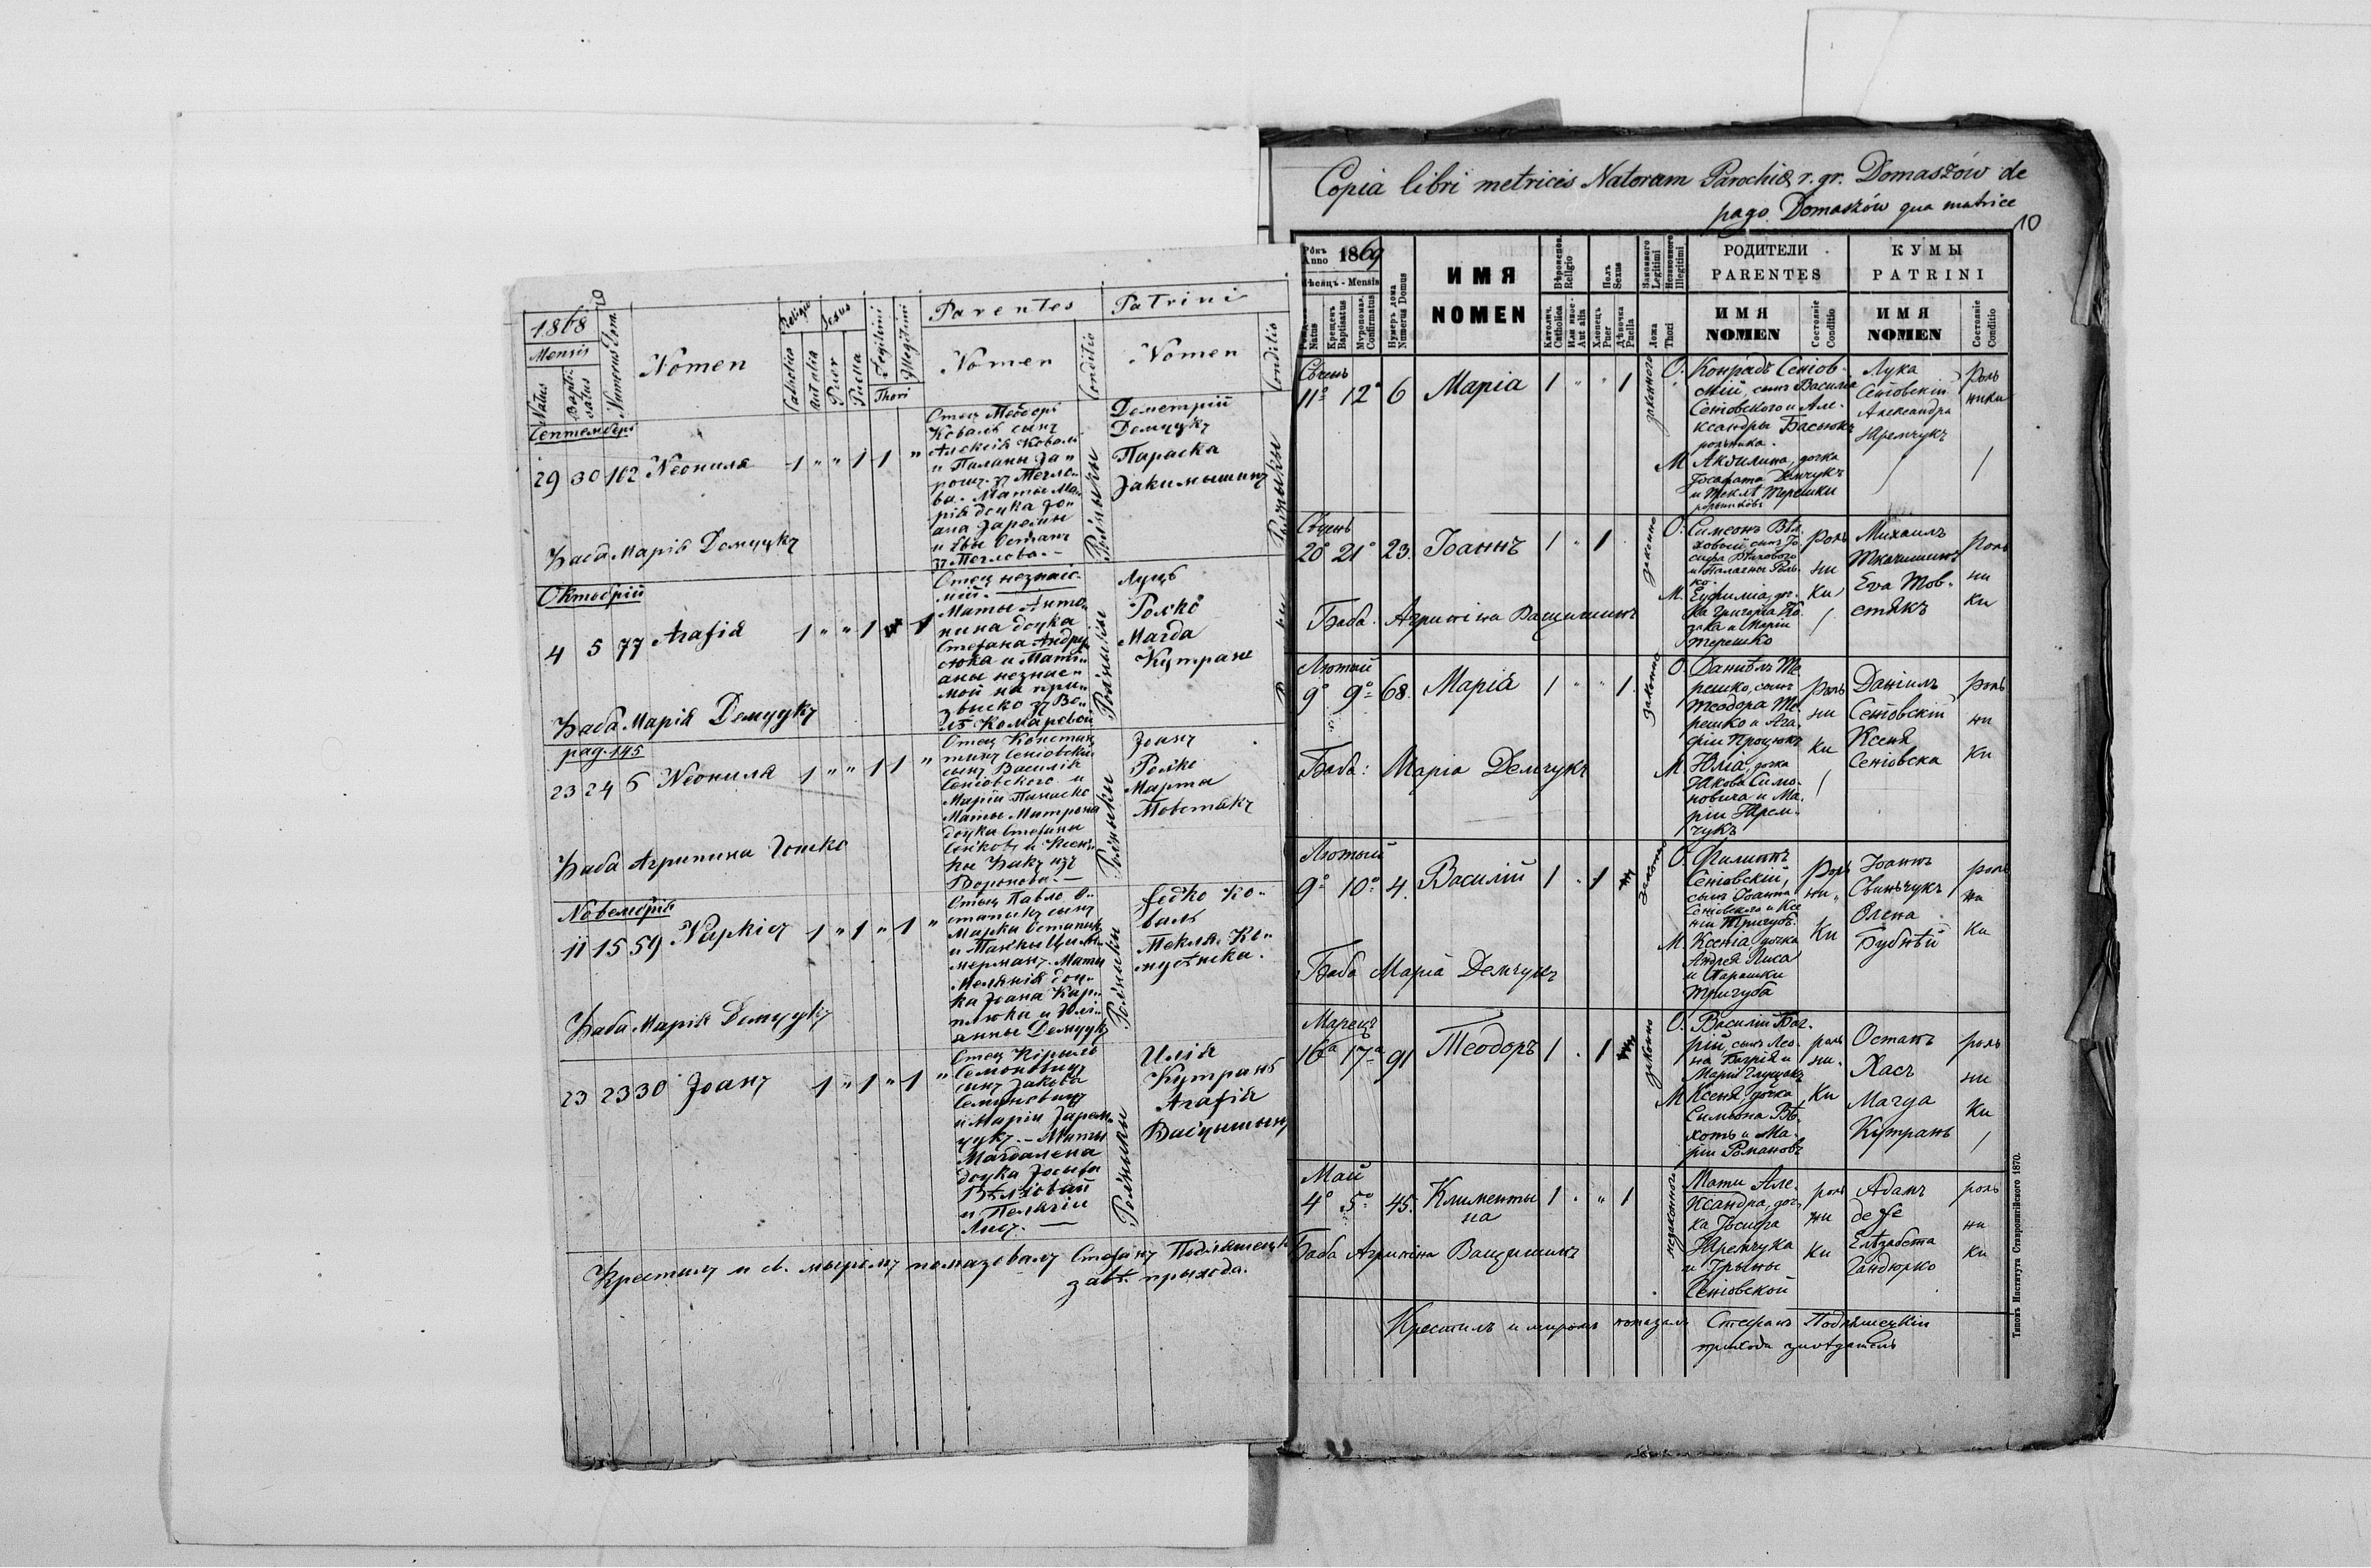 1868
Mensis
Natus
Bapti-
satus
Numerus Dom.
Nomen
Religio
Catholica
Aut alia
Sexus
Puer
Puella
Legitimi
Illegitimi
Thori
Parentes
Nomen
Conditio
Patrini
Nomen
Conditio
Септемврій
29 30 102 Неонила 1 " " 1 1 "
Отец Теодоръ
Коваль сынъ
Алексія Коваль
Маты Ма-
рія доцка Іо-
Рольныки
Деметрій
Демчукъ
Параска
Баба Марія Демчукъ
Октобрій
4 5 77 Агафія 1 " " 1 1
Отец незнаіс-
мій.
Маты Анто-
нина доцка
Стефана Андру-
сюка и Тать-
аны незнас-
мой на при-
звиско зъ Во-
Рольныки
Луць
Ролко
Магда
Кутрань
Баба Марія Демчукъ
pag. 145
23 24 6 Неонила 1 " " 1 1 "
Отец Констан-
тинъ Сеніовскій
сынъ Василія
Сеніовского и
Маріи Панаско
Маты Митрона
доцка Стефана
Рольныки
Іоанъ
Ролко
Марта
Товстакъ
Баба Агрипина Гошко
Новемврія
11 15 59 Наркисъ 1 " 1 " 1 "
Отец Павло О-
стапюкъ сынъ
Марка Остапюкъ
Маты
Меланія доц-
ка Іоана Кар-
плюка и Юлі-
анны Демчукъ
Рольныки
Федко Ко-
валь
Текля
Баба Марія Демчукъ
23 23 30 Іоанъ 1 " 1 " 1 "
Отец Кірыло
Семоновичъ
сынъ Якова
Семоновичъ
и Маріи Ярем-
чукъ. Маты
Магдалена
доцка Іосыфа
Вѣлховый
и Пелагіи
Лисъ.
Рольныки
Илія
Кутрань
Агафія
Ващышынъ
Крестилъ и св. мыромъ помазовалъ Стефанъ Подляшецкій
завѣ. прихода.
Copia libri metricis Natorum Parochiæ r. gr. Domaszów de
pago Domaszów qua matrice
10
Рôкъ
Anno 1869
Мѣсяцъ - Mensis
Natus
Крещенъ
Baptisatus
Мѵропомаз.
Confirmatus
Нумеръ дома
Numerus Domus
ИМЯ
NOMEN
Вѣроисповѣд.
Religio
Католич.
Catholica
Или иное
Aut alia
Полъ
Sexus
Хлопецъ
Puer
Дѣвочка
Puella
Законного
Legitimi
Незаконного
Illegitimi
Ложа
Thori
РОДИТЕЛИ
PARENTES
ИМЯ
NOMEN
Состояніе
Conditio
КУМЫ
PATRINI
ИМЯ
NOMEN
Состояніе
Conditio
Сѣчень
11° 12° 6 Марія 1 " " 1
законного
О. Конрадъ Сеніов-
скій, сынъ Василія
Сеніовского и Але-
ксандры Басюкъ
рольника.
М. Акилина, дочка
Іосафата Демчукъ
и Теклѣ Терешки
рольниковъ
Лука
Сеніовскій
Александра
Яремчукъ
Роль
ники
Сѣчень
20° 21° 23. Іоаннъ 1 " 1
законно
О. Симеонъ Вѣл-
ховый, сынъ Іо-
сифа Вѣлхового
и Палагны Роль-
ко.
М. Еуфимія, доч-
ка Григорія Ко-
зака и Маріи
Терешко
Роль
ни
ки
Михаилъ
Ткачишинъ
Ева Тов-
стякъ
Роль
ни
ки
Баба. Агрипина Ващишинъ
Лютый
9° 9° 68. Марія 1 " " 1
законно
О. Даніилъ Те-
решко, сынъ
Теодора Те-
решко и Ага-
фіи Процюкъ
М. Юлія, дочка
Якова Симо-
новича и Ма-
ріи Ярем-
чукъ
Роль
ни
ки
Даніилъ
Сеніовскій
Ксеня
Сеніовска
роль
ни
ки
Баба: Марія Демчукъ
Лютый
9° 10° 4. Василій 1 " 1
законно
О. Филиппъ
Сеніовскій,
сынъ Іоанна
Сеніовского и Ксе-
ніи Тригубъ.
М. Ксенія, дочка
Андрея Лиса
и Парашки
Тригуба
Роль
ни
ки
Іоаннъ
Свиньчукъ
Олена
Бубнѣй
роль
ни
ки
Баба Марія Демчукъ
Марецъ
16ª 17ª 91 Теодоръ 1 " 1
законно
О. Василій Баг-
рій, сынъ Лео-
на Багрія и
Маріи Глущакъ
М. Ксеня дочка
Симеона Вѣ-
хотъ и Ма-
ріи Романовъ
роль
ни
ки
Остапъ
Хасъ
Магда
Кутрань
роль
ни
ки
Май
4° 5° 45. Клименты-
на 1 " " 1
незаконного
Мати Але-
ксандра, доч-
ка Іосифа
Яремчука
и Ірыны
Сеніовской
роль
ни
ки
Адамъ
Елѣзавета
Гандюрко
роль
ни
ки
Баба Агрипина Ващишинъ
Крестилъ и миромъ помазалъ Стефанъ Подляшецкій
прихода завѣдатель
Типомъ Института Ставропигійского 1870.